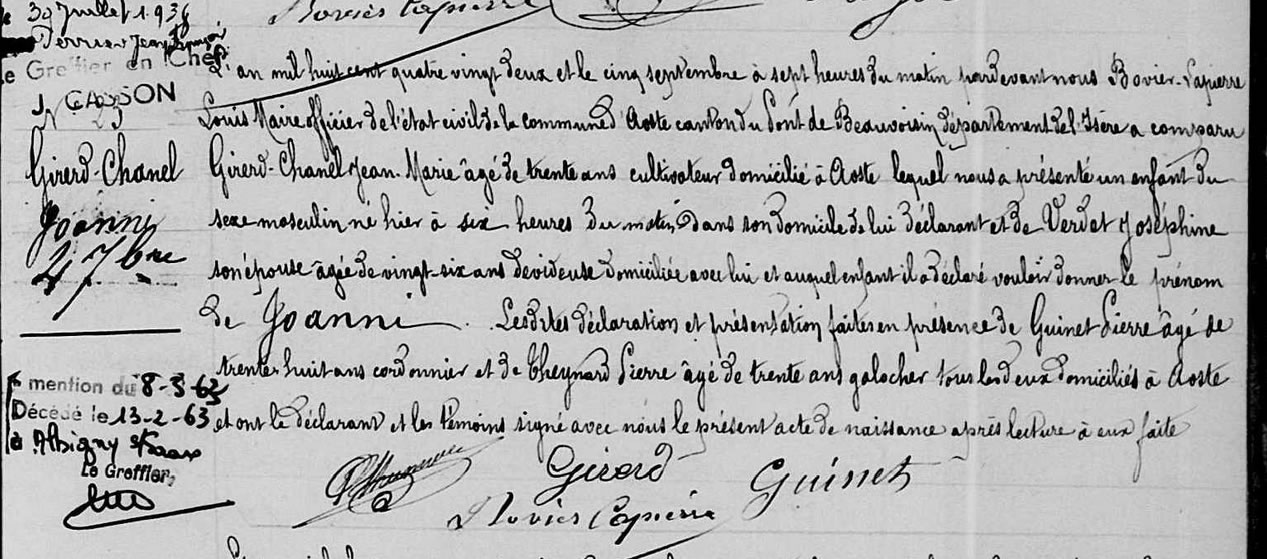 30 Juillet 1936
Perrier Jean
Le Greffier en Chef
J. CASSON
N° 23
Girerd-Chanel
Joanni
4 7bre
Bovier Lapierre
L'an mil huit cent quatre vingt deux et le cinq septembre à sept heures du matin pardevant nous Bovier-Lapierre
Louis Maire officier de l'état civil de la commune d'Aoste canton du Pont de Beauvoisin département de l'Isère a comparu
Girerd-Chanel Jean-Marie âgé de trente ans cultivateur domicilié à Aoste lequel nous a présenté un enfant du
sexe masculin né hier à six heures du matin dans son domicile de lui déclarant et de Verdet Joséphine
son épouse âgée de vingt-six ans dévideuse domiciliée avec lui et auquel enfant il a déclaré vouloir donner le prénom
de Joanni. Lesdites déclaration et présentation faites en présence de Guinet Pierre âgé de
trente huit ans cordonnier et de Cheynard Pierre âgé de trente ans galocher tous les deux domiciliés à Aoste
et ont le déclarant et les témoins signé avec nous le présent acte de naissance après lecture à eux faite
mention du 8-3-63
Décédé le 13-2-63
à Albigny s/Saône
Le Greffier,
Girerd
Guinet
Bovier Lapierre